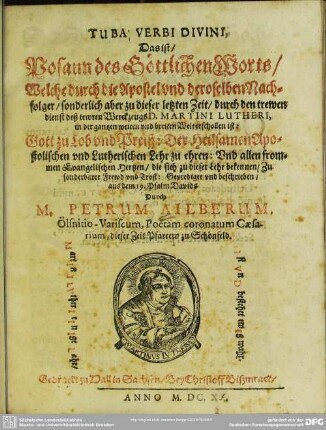 TUBA VERBI DIVINI,
Das ist/
Posaun des Göttlichen Worts/
Welche durch die Apostel vnd deroselben Nach-
folger/ sonderlich aber zu dieser letzten Zeit/ durch den trewen
dienst deß tewren Werckzeugs D. MARTINI LUTHERI,
in der gantzen weiten vnd breiten Welt erschollen ist:
Gott zu Lob vnd Preiß: Der Heilsamen Apo-
stolischen vnd Lutherischen Lehr zu ehren: Vnd allen from-
men Evangelischen Hertzen/ die sich zu dieser Lehr bekennen/ Zu
sonderbarer Frewd vnd Trost: Geprediget vnd beschrieben/
aus dem 19. Psalm Davids
Durch
M. PETRUM AILBERUM,
Olsnitio-Variscum, Poëtam coronatum Cæsa-
rium, dieser Zeit Pfarrern zu Schönfeld.
MARTINUS LUTHER
Gedruckt zu Hall in Sachsen/ Bey Christoff Bißmarck/
ANNO M. DC. XX.